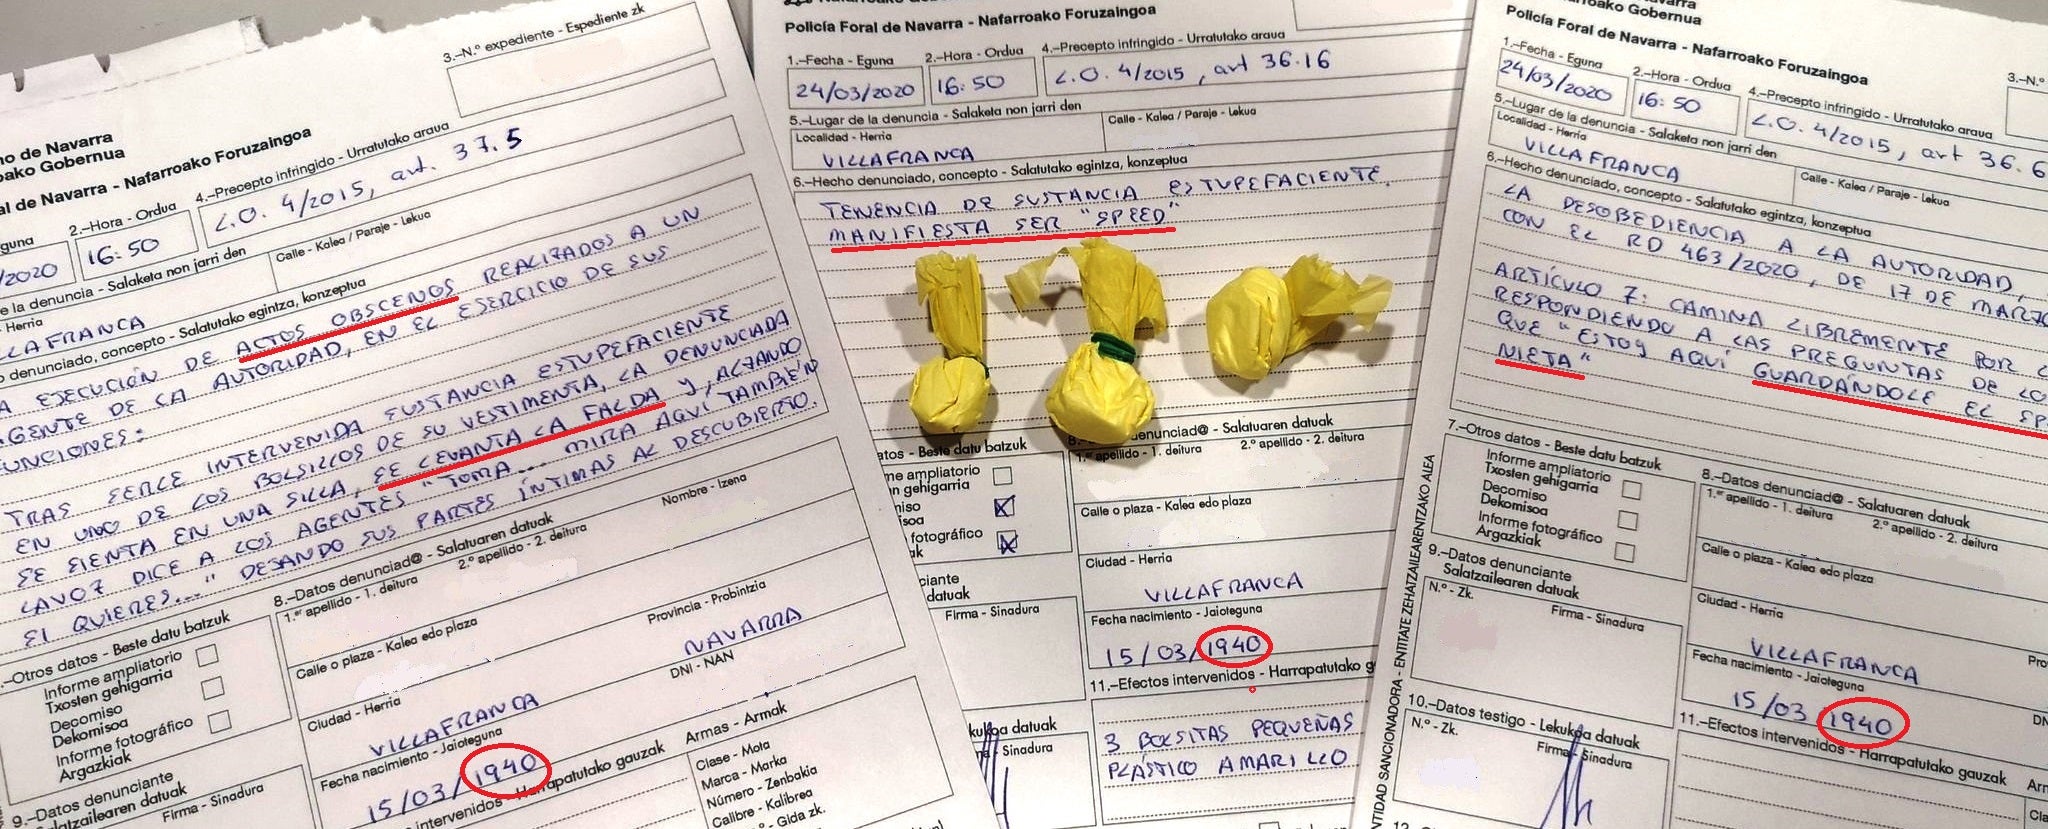 3.-N.º expediente - Espediente zk
no de Navarra
oako Gobernua
al de Navarra - Nafarroako Foruzaingoa
2.-Hora - Ordua
4.-Precepto infringido - Urratutako araua
/2020
16:50
L.O. 4/2015, art. 37.5
e la denuncia - Salaketa non jarri den
Calle - Kalea / Paraje - Lekua
LLAFRANCA
denunciado, concepto - Salatutako egintza, konzeptua
A EJECUCIÓN DE ACTOS OBSCENOS REALIZADOS A UN
AGENTE DE LA AUTORIDAD, EN EL EJERCICIO DE SUS
FUNCIONES:
TRAS SERLE INTERVENIDA SUSTANCIA ESTUPEFACIENTE
EN UNO DE LOS BOLSILLOS DE SU VESTIMENTA, LA DENUNCIADA
SE SIENTA EN UNA SILLA, SE LEVANTA LA FALDA Y, ALZANDO
LA VOZ DICE A LOS AGENTES "TOMA... MIRA AQUÍ TAMBIÉN
SI QUIERES..." DEJANDO SUS PARTES ÍNTIMAS AL DESCUBIERTO.
-Otros datos - Beste datu batzuk
Informe ampliatorio
Txosten gehigarria
Decomiso
Dekomisoa
Informe fotográfico
Argazkiak
9.-Datos denunciante
Salatzailearen datuak
Firma - Sinadura
8.-Datos denunciad@ - Salatuaren datuak
1.er apellido - 1. deitura
2.º apellido - 2. deitura
Nombre - Izena
Calle o plaza - Kalea edo plaza
Provincia - Probintzia
NAVARRA
Ciudad - Herria
DNI - NAN
VILLAFRANCA
Fecha nacimiento - Jaioteguna
15/03/1940
intervenidos - Harrapatutako gauzak
Armas - Armak
Clase - Mota
Marca - Marka
Número - Zenbakia
Calibre - Kalibrea
Gida zk.
Policía Foral de Navarra - Nafarroako Foruzaingoa
1.-Fecha - Eguna
2.-Hora - Ordua
4.-Precepto infringido - Urratutako araua
24/03/2020
16:50
L.O. 4/2015, art 36.16
5.-Lugar de la denuncia - Salaketa non jarri den
Localidad - Herria
Calle - Kalea / Paraje - Lekua
VILLAFRANCA
6.-Hecho denunciado, concepto - Salatutako egintza, konzeptua
TENENCIA DE SUSTANCIA ESTUPEFACIENTE.
MANIFIESTA SER "SPEED"
atos - Beste datu batzuk
me ampliatorio
en gehigarria
niso
isoa
fotográfico
ak
ciante
datuak
Firma - Sinadura
denunciad@ - Salatuaren datuak
1.er apellido - 1. deitura
2.º apellido - 2. deitura
Calle o plaza - Kalea edo plaza
Ciudad - Herria
VILLAFRANCA
Fecha nacimiento - Jaioteguna
15/03/1940
11.-Efectos intervenidos - Harrapatutako g
kukoa datuak
Sinadura
3 BOLSITAS PEQUEÑAS
PLÁSTICO AMARILLO
roako Gobernua
Policía Foral de Navarra - Nafarroako Foruzaingoa
3.-N.º
1.-Fecha - Eguna
2.-Hora - Ordua
4.-Precepto infringido - Urratutako araua
24/03/2020
16:50
L.O. 4/2015, art 36.6
5.-Lugar de la denuncia - Salaketa non jarri den
Localidad - Herria
Calle - Kalea / Paraje - Lekua
VILLAFRANCA
6.-Hecho denunciado, concepto - Salatutako egintza, konzeptua
LA DESOBEDIENCIA A LA AUTORIDAD,
CON EL RD 463/2020, DE 17 DE MARZO
ARTÍCULO 7: CAMINA LIBREMENTE POR L
RESPONDIENDO A LAS PREGUNTAS DE LO
QUE "ESTOY AQUÍ GUARDÁNDOLE EL SP
NIETA"
7.-Otros datos - Beste datu batzuk
Informe ampliatorio
Txosten gehigarria
Decomiso
Dekomisoa
Informe fotográfico
Argazkiak
9.-Datos denunciante
Salatzailearen datuak
N.º - Zk.
Firma - Sinadura
10.-Datos testigo - Lekukoa datuak
N.º - Zk.
Firma - Sinadura
8.-Datos denunciad@ - Salatuaren datuak
1.er apellido - 1. deitura
2.º apellido - 2. deitura
Calle o plaza - Kalea edo plaza
Ciudad - Herria
VILLAFRANCA
Pro
Fecha nacimiento - Jaioteguna
15/03/1940
DN
11.-Efectos intervenidos - Harrapatutako gauzak
ENTIDAD SANCIONADORA - ENTITATE ZEHATZAILEARENTZAKO ALEA